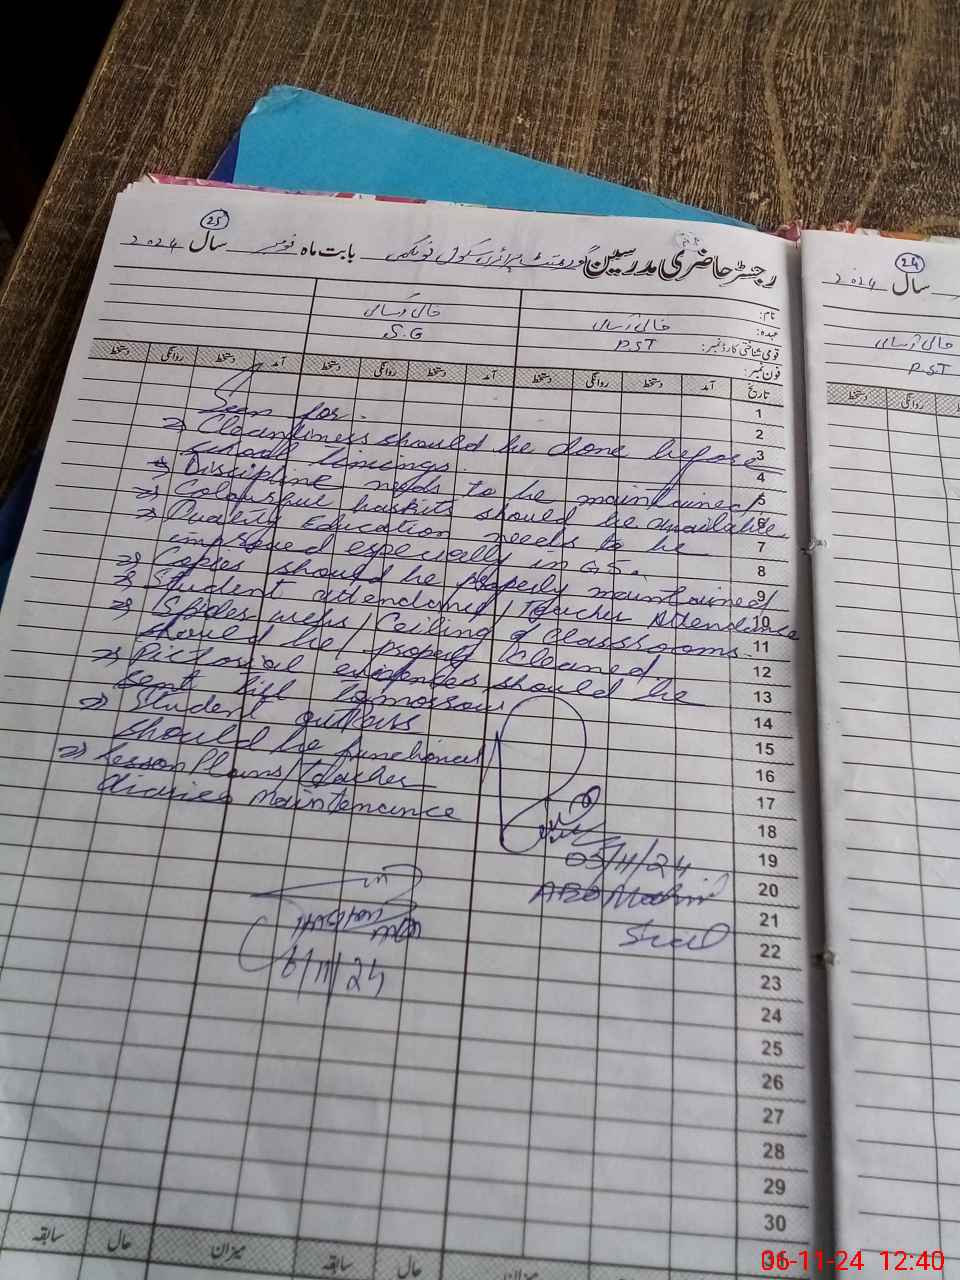 25
رجسٹر حاضری مدرسین گورنمنٹ پرائمری سکول بابت ماہ نومبر سال 2024
نام:
عہدہ: خالی آسامی خالی آسامی
قومی شناختی کارڈ نمبر: PST S.G
فون نمبر:
تاریخ آمد دستخط روانگی دستخط آمد دستخط روانگی دستخط آمد دستخط روانگی دستخط
Seen for.
⇒ Cleanliness should be done before
school timings.
⇒ Discipline needs to be maintained
⇒ Colourful baskits should be available
⇒ Quality Education needs to be
improved especially in G5.
⇒ Copies should be properly maintained
⇒ Student attendance / Teacher Attendance
⇒ Spider webs / Ceiling of classrooms
should be properly cleaned
⇒ Pictorial evidences should be
sent till tomorrow
⇒ Student
should be functional
⇒ Lesson Plans / Teacher
diaries maintenance
05/11/24
6/11/24
1
2
3
4
5
6
7
8
9
10
11
12
13
14
15
16
17
18
19
20
21
22
23
24
25
26
27
28
29
30
میزان حال سابقہ میزان حال سابقہ
24
سال 2024
خالی آسامی
PST
روانگی دستخط
06-11-24 12:40